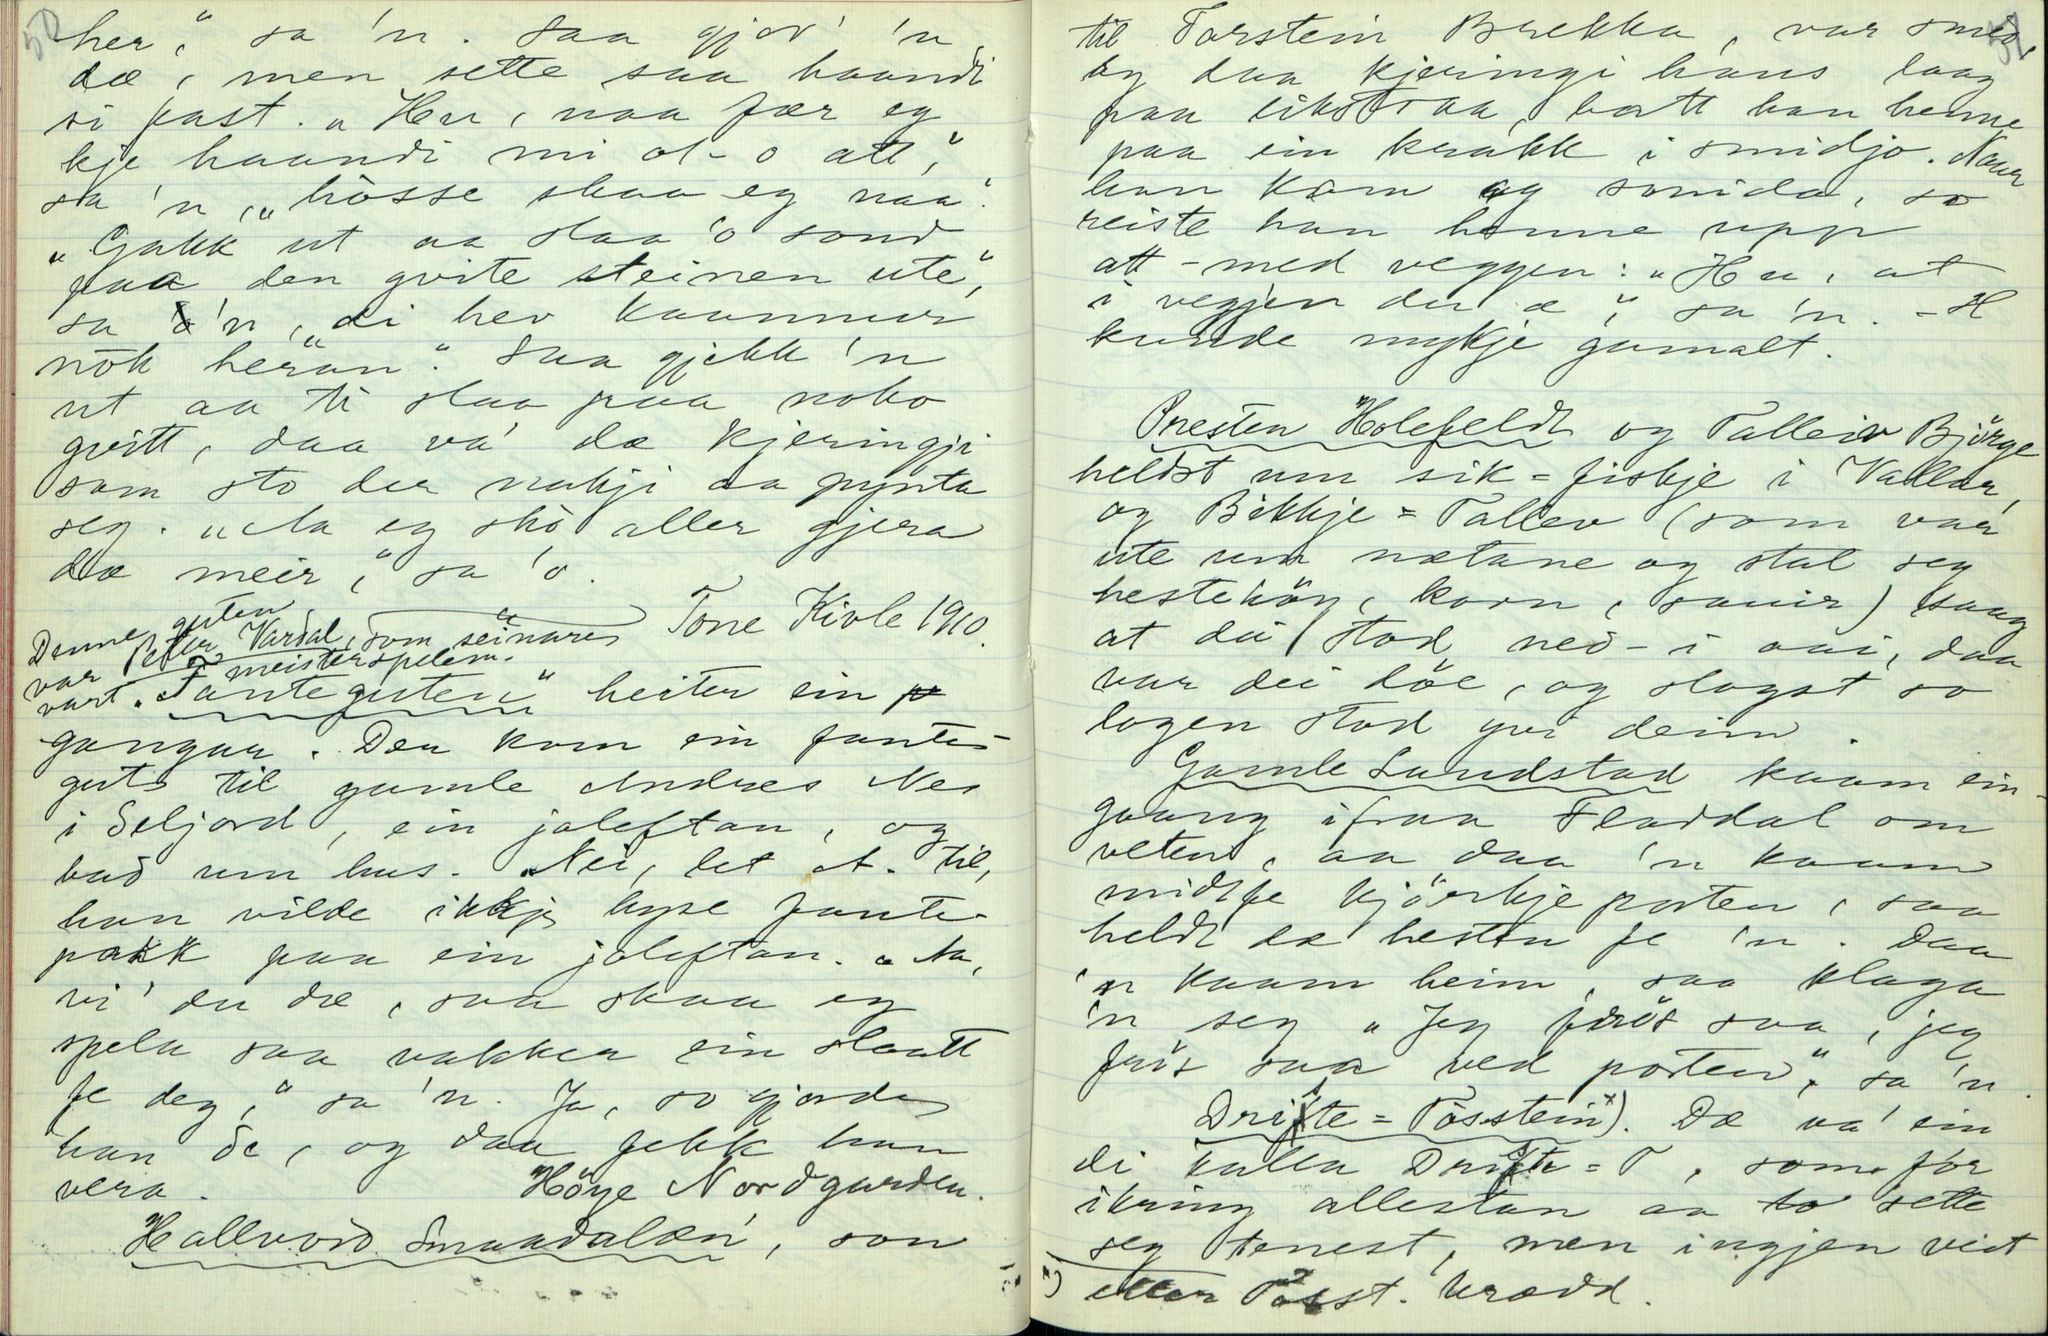 50
her," sa 'n. Saa gjor' 'n
dæ, men sette saa haandi
si fast. "Hu, naa fær eg
kje haandi mi ot-o att,"
sa 'n, "hòsse skaa eg naa".
"Gakk ut aa slaa 'o sond
paa den gvite steinen ute",
sa 'n, "di hev kaanner
nòk heran". Saa gjekk 'n
ut aa ti slaa paa noko
gvitt, daa va' dæ kjeringji
som sto der nakji aa pynta
seg. "Aa eg skò aller gjera
dæ meir," sa 'o.
Tone Kivle 1910.
Denne guten
var Petter Vardal, som seinare
vart meisterspelem.
"Fanteguten" heiter ein
gangar. Der kom ein fante-
gut til gamle Andres Nes
i Seljord, ein joleftan, og
bad um hus. Nei, let A. til,
han vilde ikkje hyse fante-
pakk paa ein joleftan. "Aa,
vi' du dæ, saa skaa eg
spela saa vakker ein slaatt
fe deg," sa 'n. Ja, so gjorde
han de, og daa fekk han
vera. Höye Nordgarden.
Hallvord Smaadalæn', son
51
til Torstein Brekka, var smed,
og daa kjeringi hans laag
paa likstraa, batt han henne
paa ein krakk i smidjo. Naar
han kom og smida, so
reiste han henne upp
att-med veggen: "Hu, at
i vegjen du æ", sa 'n. - H
kunde mykje gamalt.
Presten Holefeldt og Talleiv Björge
heldst um sik=fiskje i Vallar,
og Bikkje=Tallev (som var
ute um nætane og stal seg
hestehöy, korn, sauir) saag
at dei stod ned-i aai, daa
var dei döe, og slogst so
logen stod yvi deim.
Gamle Landstad kaam ein-
gaang ifraa Flatdal om
veteren, aa daa 'n kaam
midt fe kjörkjeporten, saa
heldt dæ hesten fe 'n. Daa
'n kaam heim, saa klaga
'n seg "Jeg frös saa, jeg
frös saa ved porten", sa 'n.
Drifte=Tosstein x). Dæ va' ein
di kalla Drifte=T, som for
ikring allestan aa sette
seg tenest, men ingjen vist
x) etter Tosst. Vrædd.